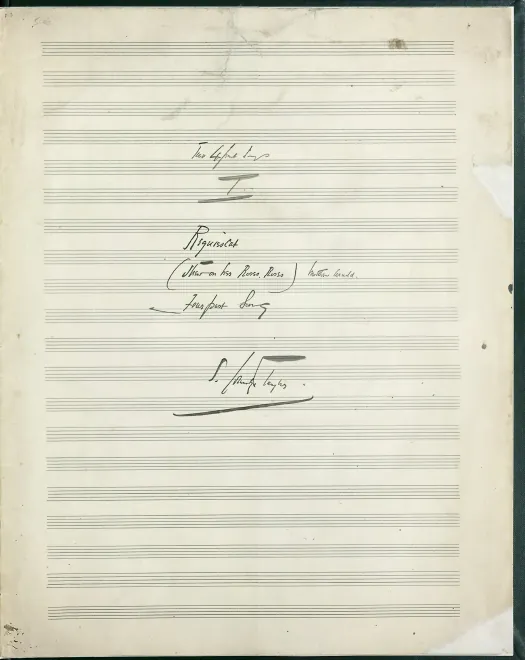 Two
I
Requiescat
(Strew on her Roses, Roses) Matthew Arnold.
Four part Song
S. Coleridge Taylor.